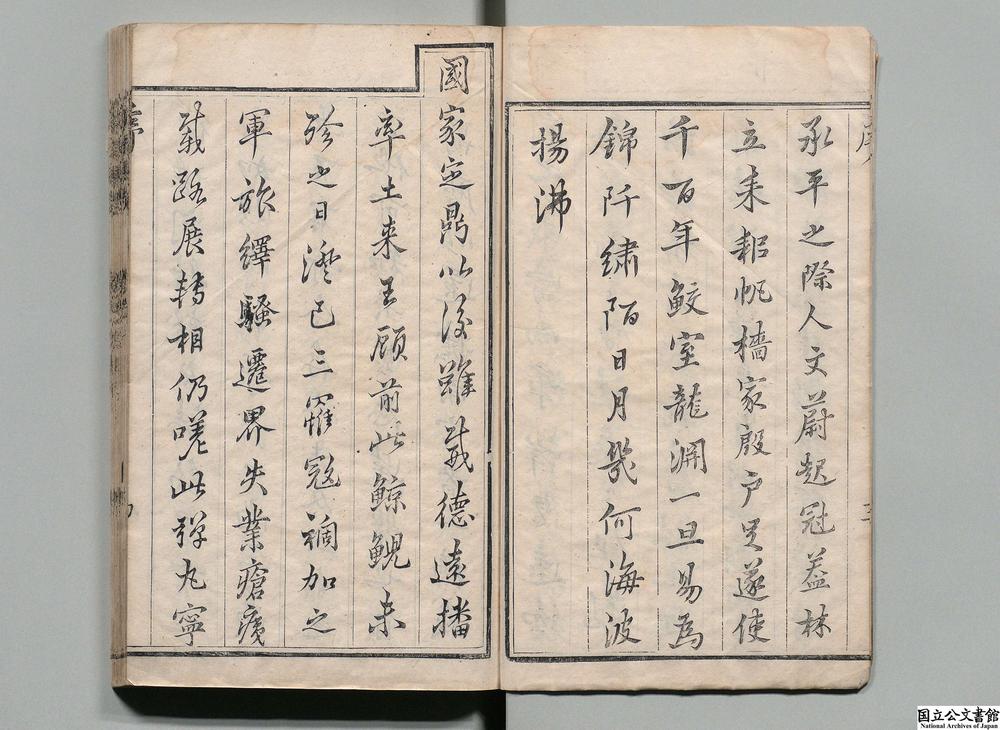 承平之際人文蔚起冠蓋林
立耒耜帆檣家殷户足遂使
千百年鮫室龍淵一旦易為
錦阡繡陌日月幾何海波
揚沸
國家定鼎以後雖威德遠播
率土来王顧前此鯨鯢未
殄之日澄已三罹寇禍加之
軍旅繹騷遷界失業瘡痍
載路展轉相仍嗟此彈丸寧
国立公文書館
National Archives of Japan